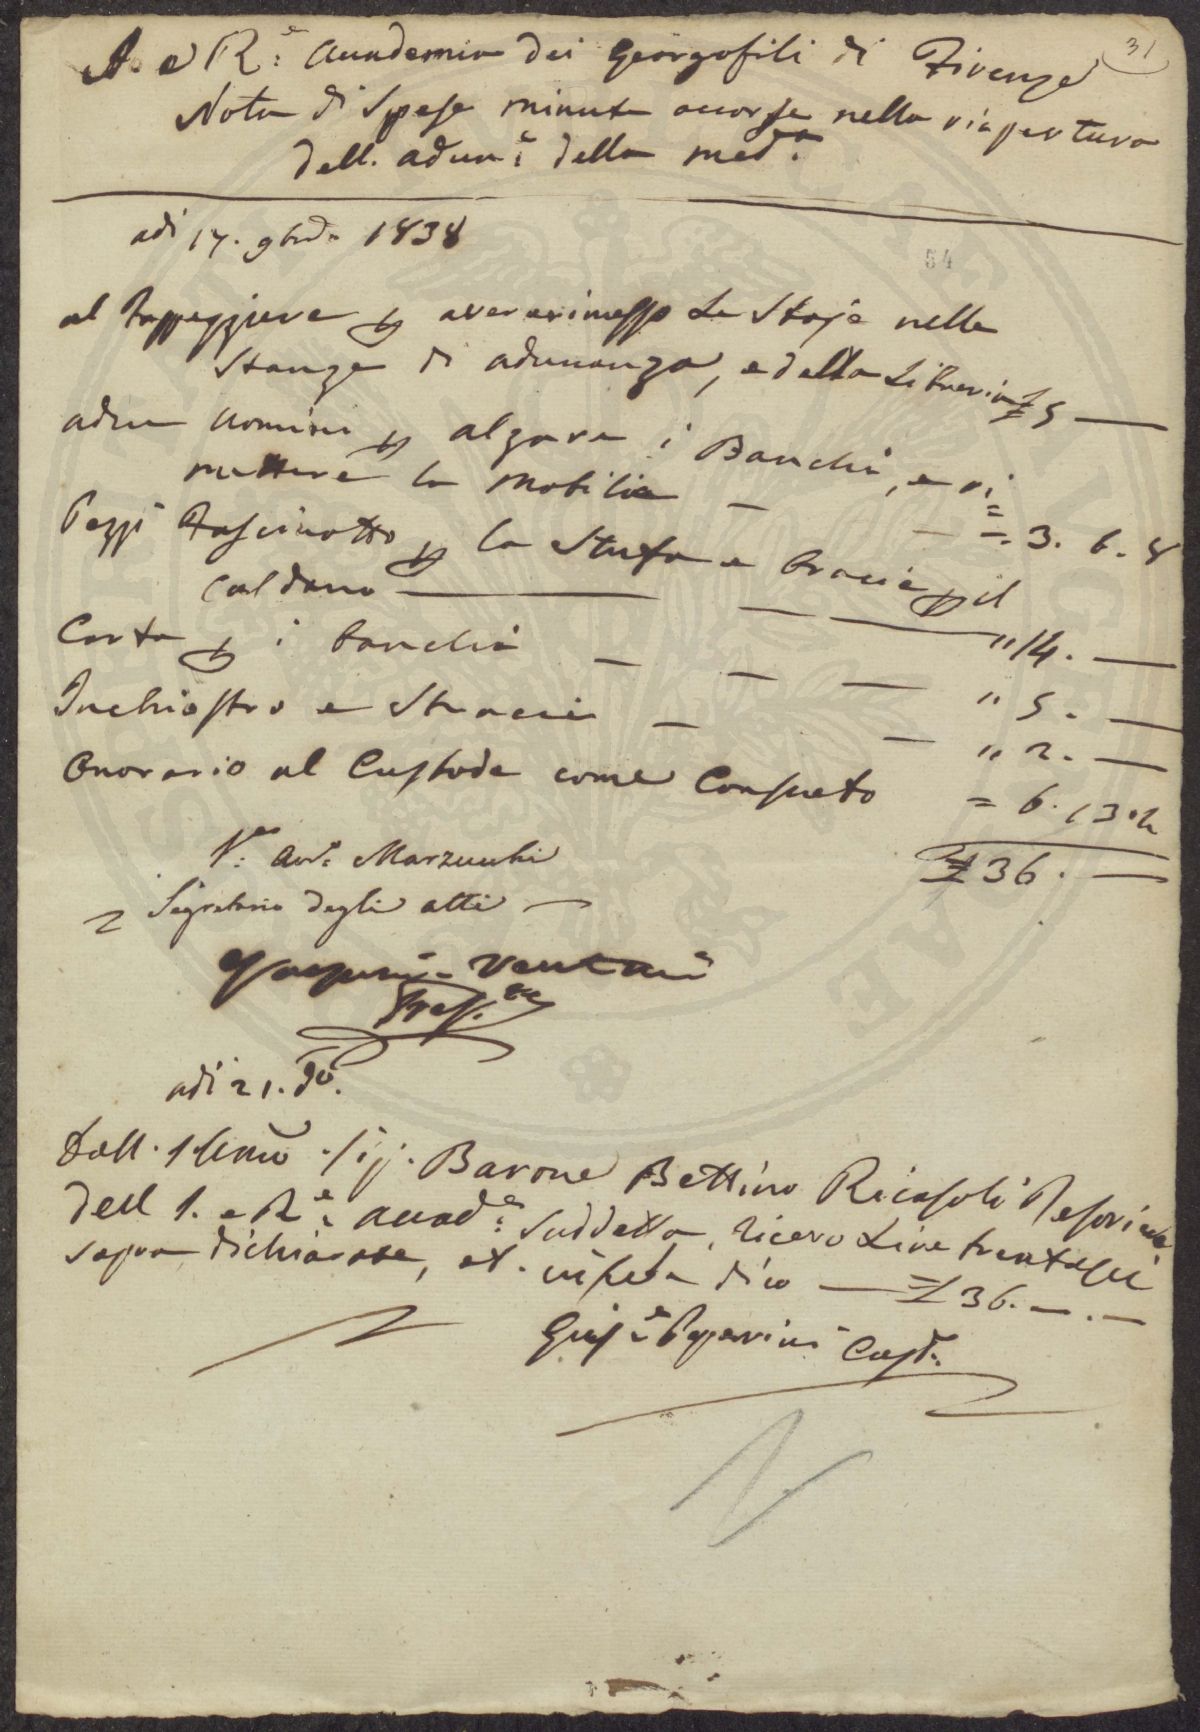 31
A. e R.e Accademia dei Georgofili di Firenze
Nota di Spese minute occorse nella riapertura
dell. adun.e della med.a
adì 17. 9bre 1838
64
al Tappezziere p aver rimesso Le Stoje nelle
Stanze di adunanza, e della Libreria £ 5 —
a due Uomini p alzare i Banchi, e ri=
mettere la Mobilia — — =. 3. 6. 8
Pezzi Fascinotto p la Stufa e brace p il
Caldano — — — " 14. —
Carta p i banchi — — — " 5. —
Inchiostro e Stracci — — " 2. —
Onorario al Custode come Consueto = 6. 13. 4
£ 36. —
V.o Avv.o Marzucchi
Segretario degli atti —
Gaspero Mencioni
Pres.te
adì 21. do.
Dall. Illmo Sig. Barone Bettino Ricasoli Tesoriere
dell I. e R.e Accad.a Suddetta, Ricevo Lire trentasei
sopra dichiarate, et. in fede dico — £ 36. — . —
Gius.e Paperini Cust.e